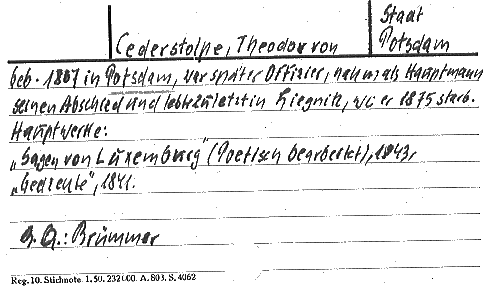 Staat
Cederstolpe, Theodor von Potsdam
geb. 1807 in Potsdam, war später Offizier, nahm als Hauptmann
seinen Abschied und lebte zuletzt in Liegnitz, wo er 1875 starb.
Hauptwerke:
„Sagen von Luxemburg" (Poetisch bearbeitet), 1843,
„Gedichte", 1841.
a. a.: Brümmer
Reg. 10. Stichnote. 1. 50. 232000. A. 803. S. 4062